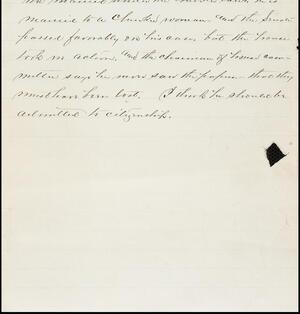 married to a Choctaw woman and the Senate
passed favorably on his case, but the house
took no action, and the chairman of house com-
mittee says he never saw the papers—that they
must have been lost. I think he should be
admitted to citizenship.